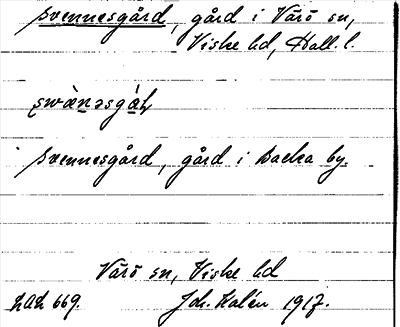 Svennesgård, gård i Värö sn,
Viske hd, Hall. l.
Svennesgård, gård i Backa by.
Värö sn, Viske hd
669. Joh. Kalén 1917.